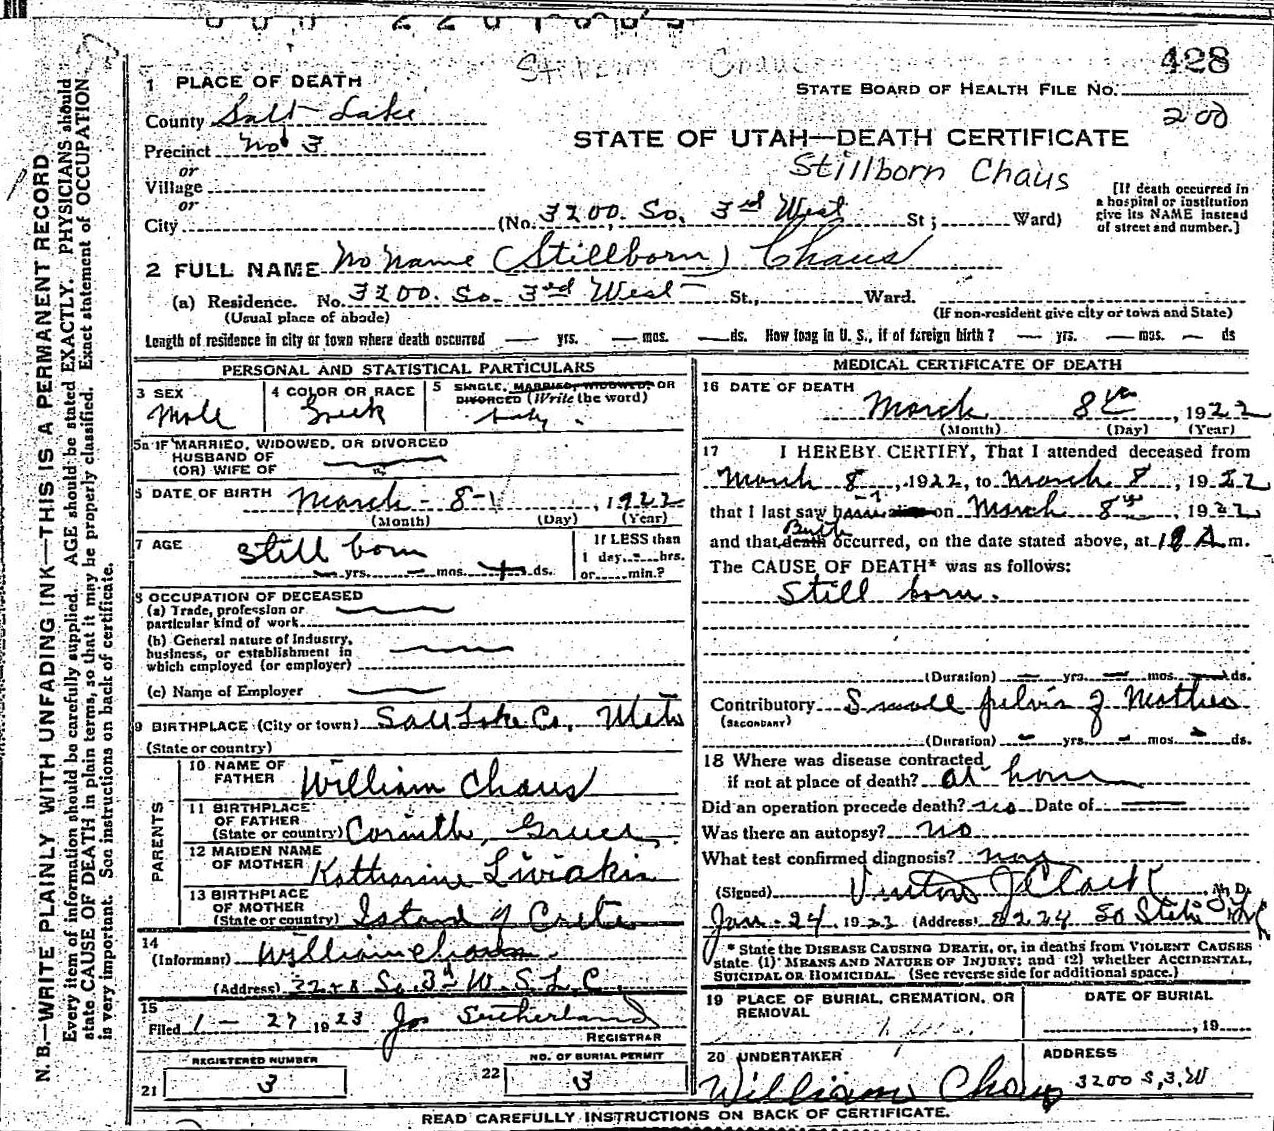 428
STATE BOARD OF HEALTH FILE NO.
200
1 PLACE OF DEATH
County Salt Lake
Precinct No 3
or
Village
or
City
STATE OF UTAH—DEATH CERTIFICATE
Stillborn Chaus
(No. 3200. So. 3rd West St; Ward)
[If death occurred in
a hospital or institution
give its NAME instead
of street and number.]
2 FULL NAME No Name (Stillborn) Chaus
(a) Residence. No. 3200. So. 3rd West St., Ward.
(Usual place of abode)
(If non-resident give city or town and State)
Length of residence in city or town where death occurred — yrs. — mos. — ds. How long in U. S., if of foreign birth? — yrs. — mos. — ds
PERSONAL AND STATISTICAL PARTICULARS
3 SEX
Male
4 COLOR OR RACE
Greek
5 SINGLE, MARRIED, WIDOWED, OR
DIVORCED (Write the word)
5a IF MARRIED, WIDOWED, OR DIVORCED
HUSBAND OF
(OR) WIFE OF
6 DATE OF BIRTH March - 8 - 1922
(Month) (Day) (Year)
7 AGE
still born
yrs. mos. ds.
If LESS than
1 day, hrs.
or min.?
8 OCCUPATION OF DECEASED
(a) Trade, profession or
particular kind of work
(b) General nature of Industry,
business, or establishment in
which employed (or employer)
(c) Name of Employer
9 BIRTHPLACE (City or town) Salt Lake Co, Utah
(State or country)
PARENTS
10 NAME OF
FATHER William Chaus
11 BIRTHPLACE
OF FATHER
(State or country) Corinth, Greece
12 MAIDEN NAME
OF MOTHER Katharine Liviakis
13 BIRTHPLACE
OF MOTHER
(State or country) Island of Crete
14
(Informant) William Chaus
(Address) So. 3d W. S. L. C.
15
Filed 1 - 27 1923 Jos Sutherland
REGISTRAR
REGISTERED NUMBER
21 3
NO. OF BURIAL PERMIT
22 3
MEDICAL CERTIFICATE OF DEATH
16 DATE OF DEATH
March 8th, 1922
(Month) (Day) (Year)
17 I HEREBY CERTIFY, That I attended deceased from
March 8, 1922, to March 8, 1922
that I last saw him alive on March 8th, 1922
and that death Birth occurred, on the date stated above, at A m.
The CAUSE OF DEATH* was as follows:
Still born.
(Duration) yrs. mos. ds.
Contributory Small pelvis of Mother
(SECONDARY)
(Duration) yrs. mos. ds.
18 Where was disease contracted
if not at place of death? at home
Did an operation precede death? no Date of
Was there an autopsy? no
What test confirmed diagnosis?
(Signed) J Clark M. D.
Jan - 24 1923 (Address) So State
* State the DISEASE CAUSING DEATH, or, in deaths from VIOLENT CAUSES
state (1) MEANS AND NATURE OF INJURY; and (2) whether ACCIDENTAL,
SUICIDAL OR HOMICIDAL. (See reverse side for additional space.)
19 PLACE OF BURIAL, CREMATION, OR
REMOVAL
DATE OF BURIAL
, 19
20 UNDERTAKER
William Chaus
ADDRESS
3200 S, 3, W
READ CAREFULLY INSTRUCTIONS ON BACK OF CERTIFICATE.
N. B.—WRITE PLAINLY WITH UNFADING INK—THIS IS A PERMANENT RECORD
Every item of information should be carefully supplied. AGE should be stated EXACTLY. PHYSICIANS should
state CAUSE OF DEATH in plain terms, so that it may be properly classified. Exact statement of OCCUPATION
is very important. See instructions on back of certificate.